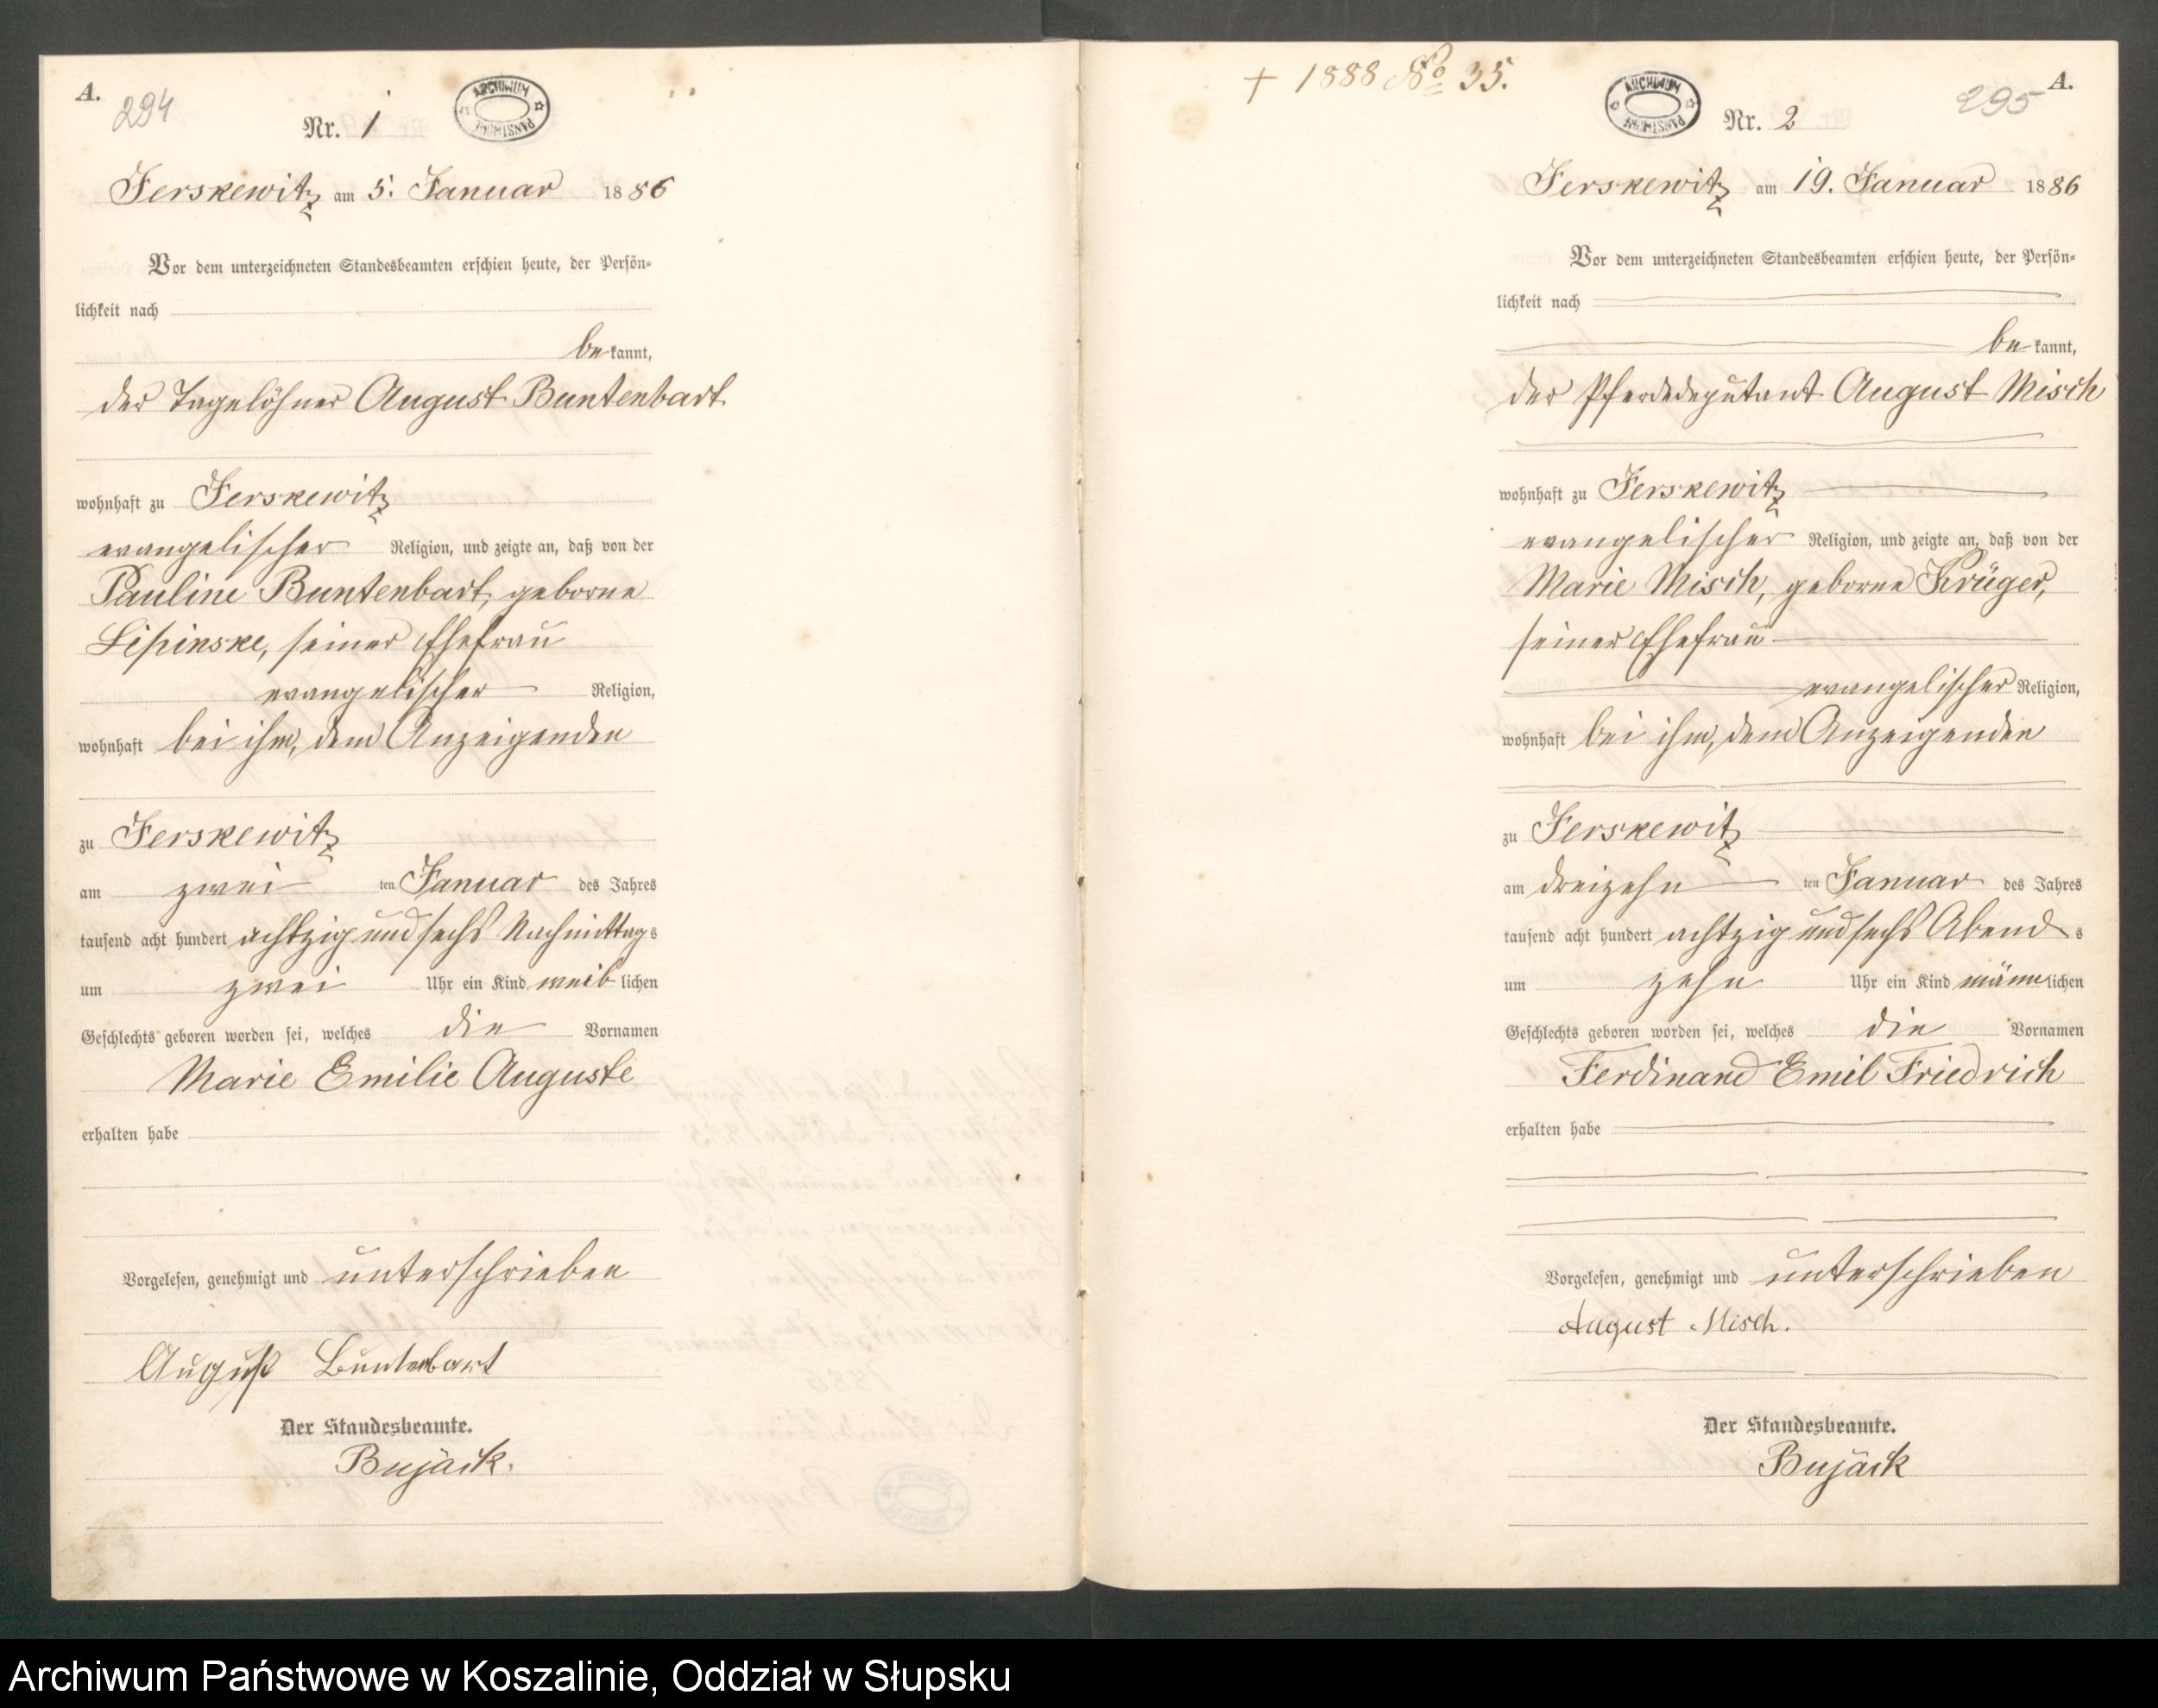 A.
294
Nr. 1
ARCHIWUM PAŃSTWOWE
Jerskewitz am 5. Januar 1886
Vor dem unterzeichneten Standesbeamten erschien heute, der Persön-
lichkeit nach
bekannt,
der Tagelöhner August Buntenbart
wohnhaft zu Jerskewitz
evangelischer Religion, und zeigte an, daß von der
Pauline Buntenbart, geborne
Lipinske, seiner Ehefrau
evangelischer Religion,
wohnhaft bei ihm, dem Anzeigenden
zu Jerskewitz
am zwei ten Januar des Jahres
tausend acht hundert achtzig und sechs Nachmittags
um zwei Uhr ein Kind weiblichen
Geschlechts geboren worden sei, welches die Vornamen
Marie Emilie Auguste
erhalten habe
Vorgelesen, genehmigt und unterschrieben
August Buntenbart
Der Standesbeamte.
Bujack.
+ 1888 No 35.
ARCHIWUM PAŃSTWOWE
Nr. 2
295
A.
Jerskewitz am 19. Januar 1886
Vor dem unterzeichneten Standesbeamten erschien heute, der Persön-
lichkeit nach
bekannt,
der Pferdedeputant August Misch
wohnhaft zu Jerskewitz
evangelischer Religion, und zeigte an, daß von der
Marie Misch, geborne Krüger,
seiner Ehefrau
evangelischer Religion,
wohnhaft bei ihm, dem Anzeigenden
zu Jerskewitz
am dreizehn ten Januar des Jahres
tausend acht hundert achtzig und sechs Abends
um zehn Uhr ein Kind männlichen
Geschlechts geboren worden sei, welches die Vornamen
Ferdinand Emil Friedrich
erhalten habe
Vorgelesen, genehmigt und unterschrieben
August Misch.
Der Standesbeamte.
Bujack
Archiwum Państwowe w Koszalinie, Oddział w Słupsku